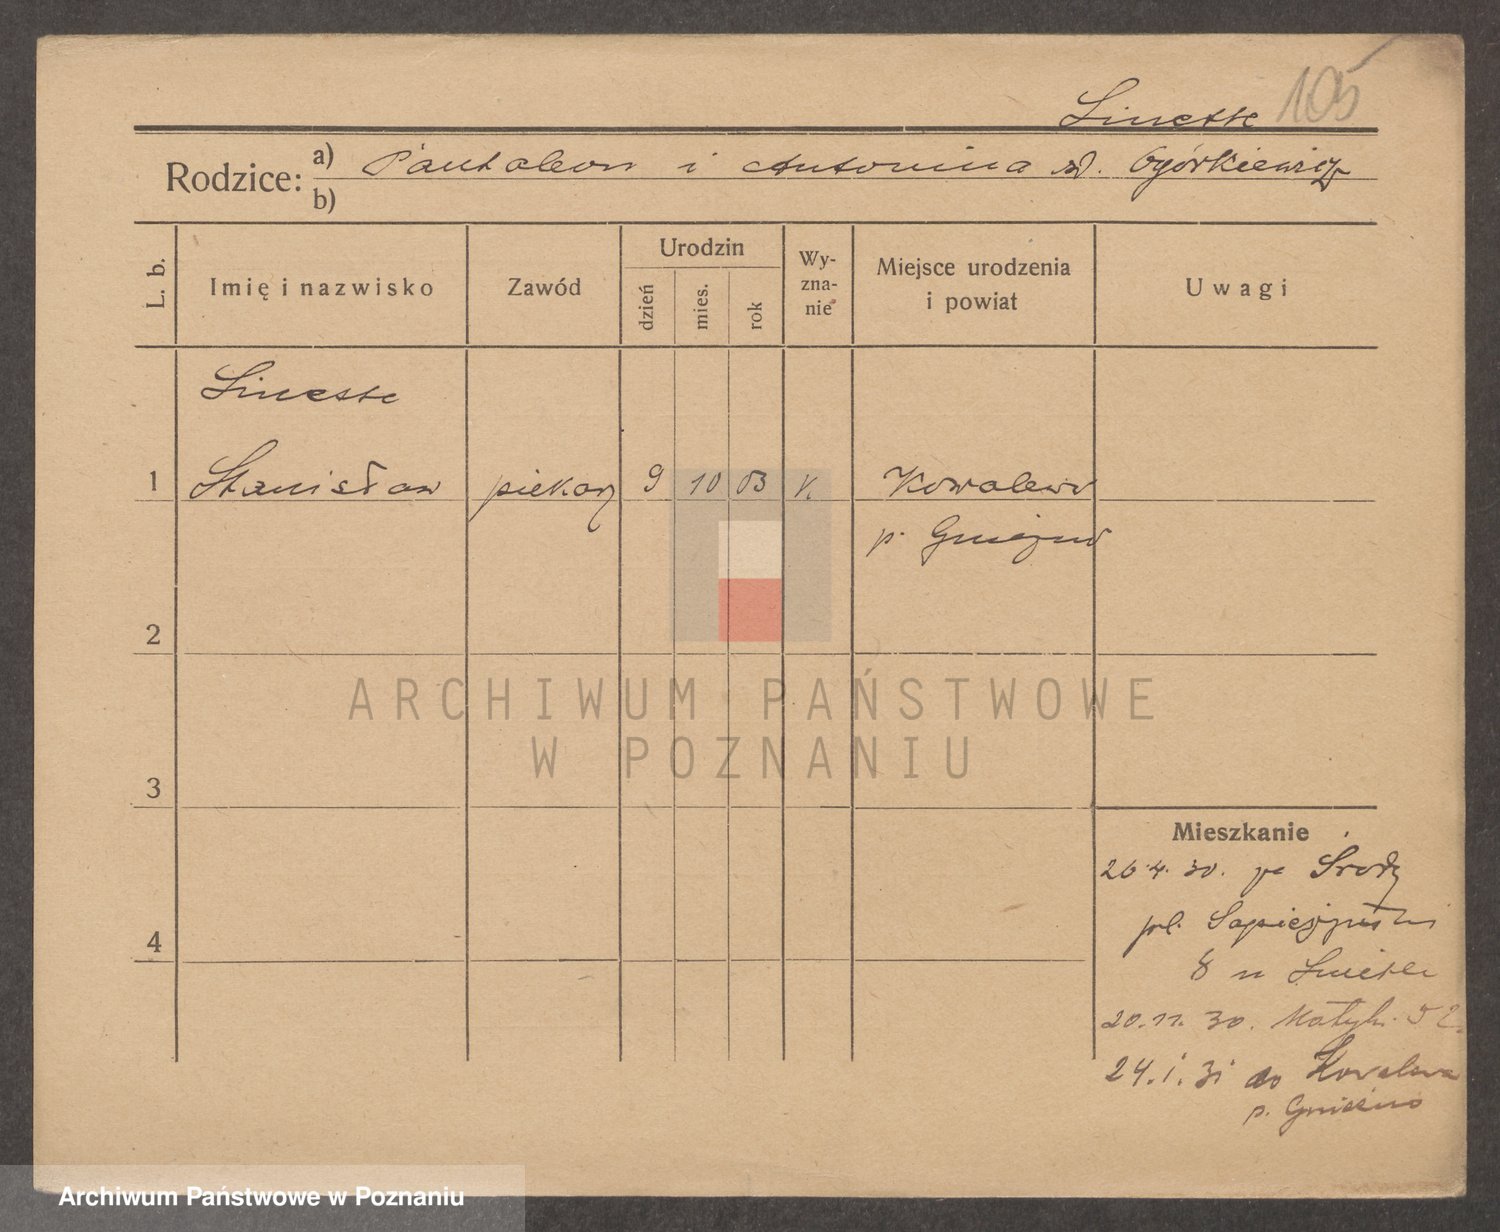 Linette 105
Rodzice: a) Pantaleon i Antonina d. Ogórkiewicz
b)
L. b.
Imię i nazwisko
Zawód
Urodzin
dzień
mies.
rok
Wy-
zna-
nie
Miejsce urodzenia
i powiat
Uwagi
Linette
1 Stanisław piekarz 9 10 03 k Kowalewo
p. Gniezno
2
ARCHIWUM PAŃSTWOWE
W POZNANIU
3
Mieszkanie
26.4.30. Środy
pl. Sapieżyński
4
8
20.11.30. Matejki 52
24.1.31 do Kowalewa
p. Gniezno
Archiwum Państwowe w Poznaniu